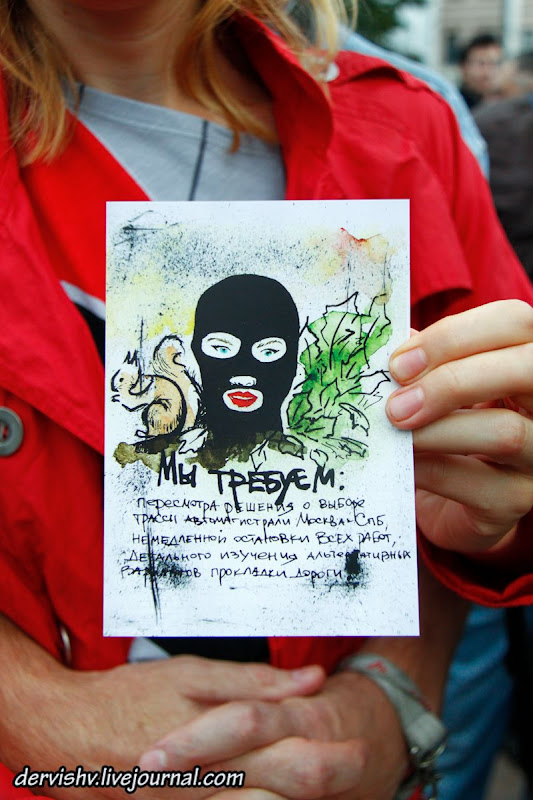 Мы требуем:
пересмотра решения о выборе
трассы автомагистрали Москва-СПб,
немедленной остановки всех работ,
детального изучения альтернативных
вариантов прокладки дороги.
dervishv.livejournal.com